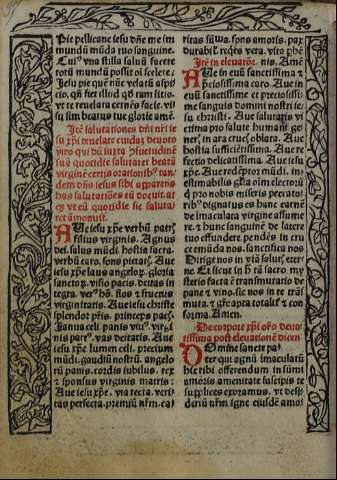 Pie pellicane iesu dñe me im
mundũ mũda tuo sanguine.
Cui⁹ vna stilla saluũ facere
totũ mundũ posset oĩ scelere.
Iesu pie quē nũc velatũ aspi
cio, qñ fiet illud qđ tam sitio.
vt te reuelata cernēs facie. vi
su sim beatus tue glorie amē.
Itē salutationes
xp̃i reuelate cuidã deuoto
suũ quotidie salutaret beatã
virginē certis orationib⁹ tan
dem dñs iesus sibi apparens
has salutatiões eũ docuit. at
se saluta
ret amonuit.
Aue iesu xp̃e verbũ patris
filius virginis. Agnus
dei. salus mũdi. hostia sacra.
verbũ caro. fons pietatis. Aue
iesu xp̃e laus angelorum. gloria
sanctorum. visio pacis. deitas in
tegra. ver⁹ hõ. flos & fructus
virginitatis. Aue iesu christe
splendor pr̃is. princeps pacis.
Ianua celi panis viu⁹. virgi
nis partus. vas deitatis. Aue
iesu xp̃e lumen celi. precium
mũdi. gaudiũ nostrũ. angelo
rũ panis. cordis iubilus. rex
& sponsus virginis matris:
Aue iesu xp̃e. via recta. veri
tas perfecta. premiũ nr̃m. ca
ritas summa. fons amoris. pax
Itē in eleuatõe. nis. Amē
Aue in euũ sanctissima &
preciosissima caro. Aue in
euũ sanctissime et preciosissi
me sanguis domini nostri ie
su christi. Aue salutaris vi
ctima pro salute humani ge
neris. in ara crucis oblata. Aue
hostia sufficientissima. Aue re
fectio delicatissima. Aue iesu
xp̃e. Aue redēptor mũdi. in
q pro nobis miseris peccato
rib⁹ dignatus es hanc carnē
de immaculata virgine assume
re. & hunc sanguinē de latere
tuo effundere. pendēs in cru
ce mũda nos. sanctifica nos
Dirige nos in viã salutis eter
ne. Et sicut in hoc tã sacro my
sterio facta ē transmutatio de
pane & vino. sic nos in te trãs
muta. & gr̃e apta totalit̃ & con
forma. Amen.
De corpore xp̃i oro deuo
tissima post eleuationē dicen
Domine sancte pater
ter qui agnũ immaculatũ
hic tibi offerendum in summi
amoris amenitate suscipis te
supplices exoramus. vt desi
deriũ nr̃m igne eiusdē amo